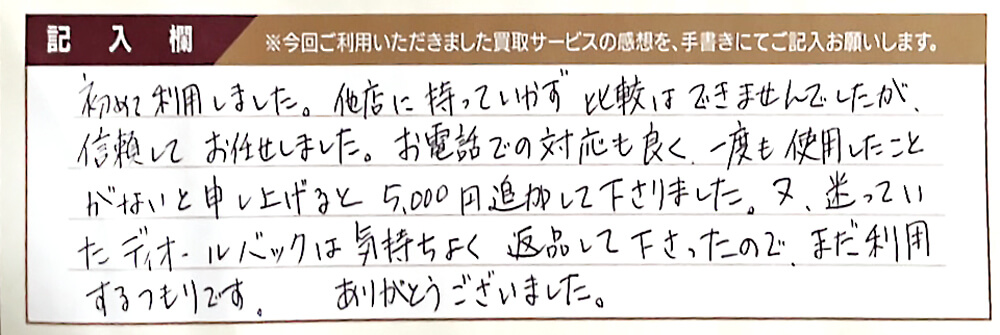 記入欄
※今回ご利用いただきました買取サービスの感想を、手書きにてご記入お願いします。
初めて利用しました。他店に持っていかず比較はできませんでしたが、
信頼してお任せしました。お電話での対応も良く、一度も使用したこと
がないと申し上げると5,000円追加して下さりました。又、迷ってい
たディオールバックは気持ちよく返品して下さったので、まだ利用
するつもりです。 ありがとうございました。